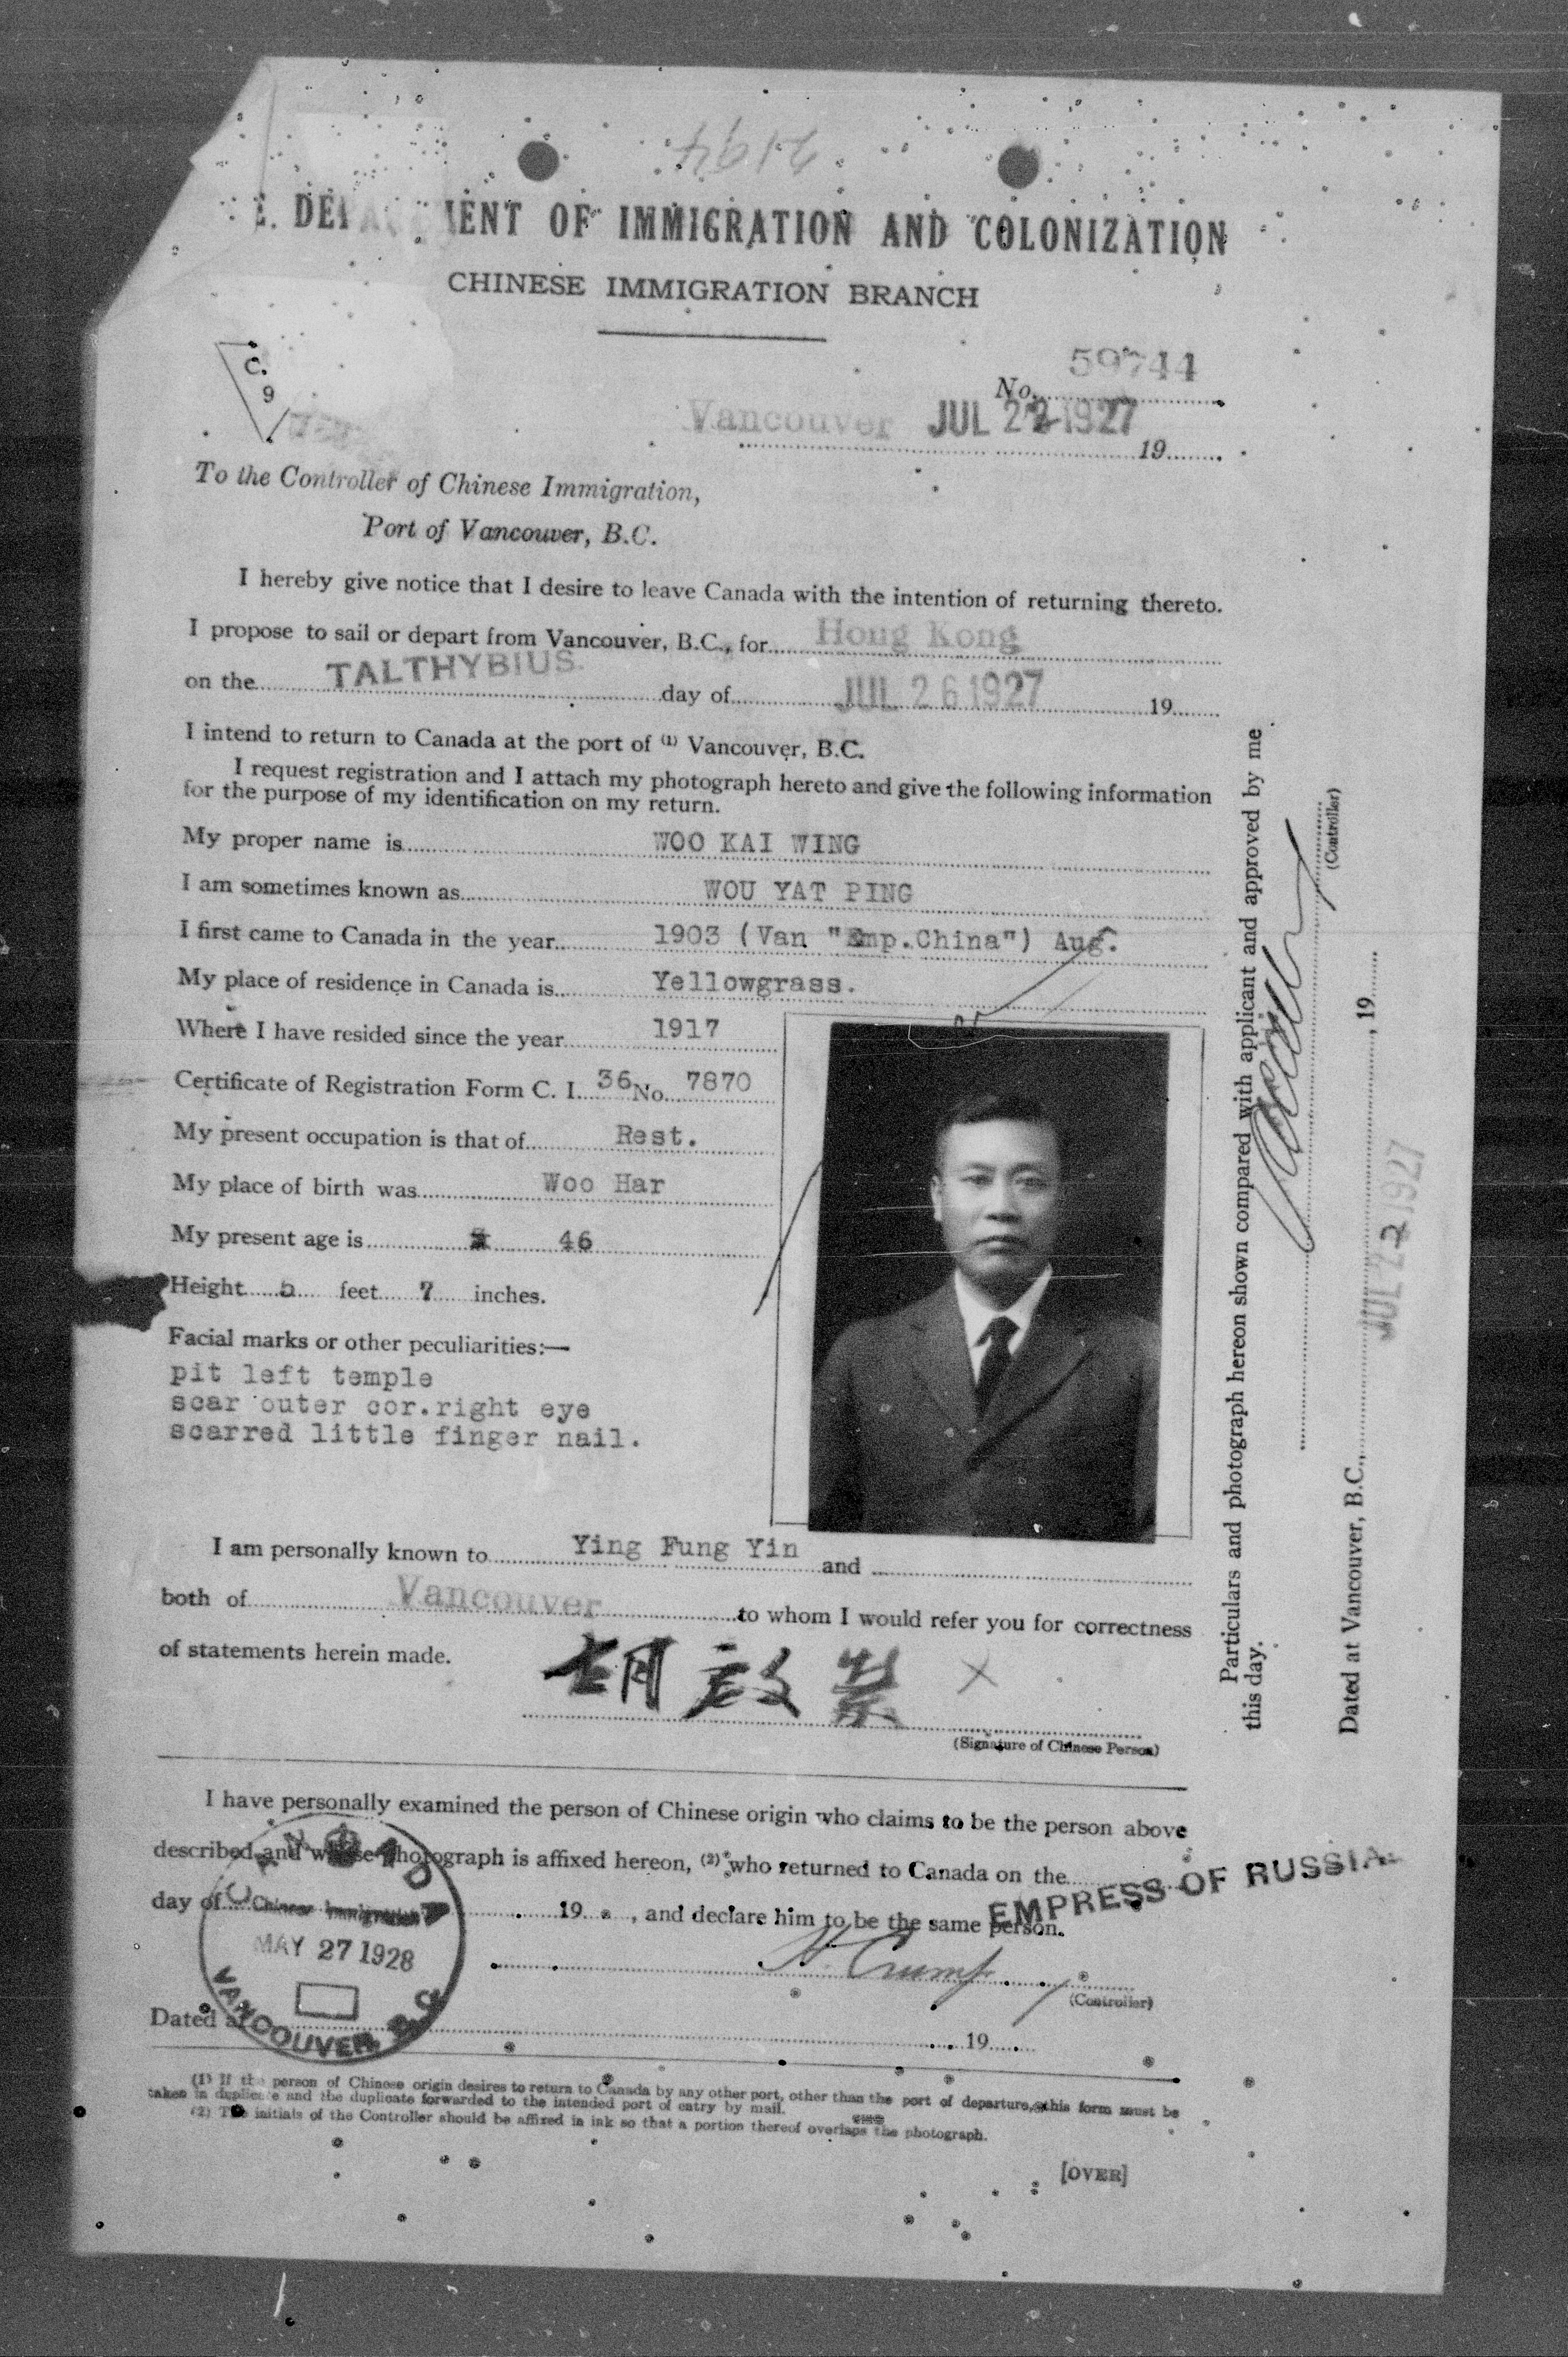 2194
E. DEPARTMENT OF IMMIGRATION AND COLONIZATION
CHINESE IMMIGRATION BRANCH
C.
9
No. 59744
Vancouver JUL 22 1927 19
To the Controller of Chinese Immigration,
Port of Vancouver, B.C.
I hereby give notice that I desire to leave Canada with the intention of returning thereto.
I propose to sail or depart from Vancouver, B.C., for Hong Kong
on the TALTHYBIUS day of JUL 26 1927 19
I intend to return to Canada at the port of (1) Vancouver, B.C.
I request registration and I attach my photograph hereto and give the following information
for the purpose of my identification on my return.
My proper name is WOO KAI WING
I am sometimes known as WOU YAT PING
I first came to Canada in the year 1903 (Van "Emp.China") Aug.
My place of residence in Canada is Yellowgrass.
Where I have resided since the year 1917
Certificate of Registration Form C. I. 36 No. 7870
My present occupation is that of Rest.
My place of birth was Woo Har
My present age is 46
Height 5 feet 7 inches.
Facial marks or other peculiarities:—
pit left temple
scar outer cor.right eye
scarred little finger nail.
I am personally known to Ying Fung Yin and
both of Vancouver to whom I would refer you for correctness
of statements herein made.
胡啟荣 X
(Signature of Chinese Person)
I have personally examined the person of Chinese origin who claims to be the person above
described and whose photograph is affixed hereon, (2) who returned to Canada on the
EMPRESS OF RUSSIA
day of 19 , and declare him to be the same person.
H. Crump
(Controller)
Dated at 19
CANADA
Chinese Immigration
MAY 27 1928
VANCOUVER B.C.
(1) If the person of Chinese origin desires to return to Canada by any other port, other than the port of departure, this form must be
taken in duplicate and the duplicate forwarded to the intended port of entry by mail.
(2) The initials of the Controller should be affixed in ink so that a portion thereof overlaps the photograph.
[OVER]
Particulars and photograph hereon shown compared with applicant and approved by me
this day.
(Controller)
Dated at Vancouver, B.C., JUL 22 1927, 19